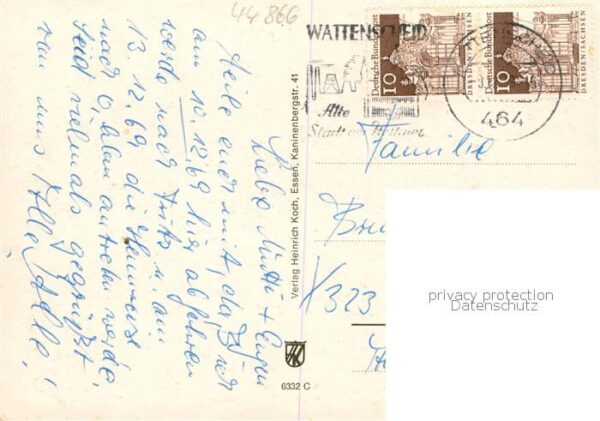 44 866
Liebe Mutti + Eugen
Teile euch mit, daß ich
am 10.12.69 hier abfahren
werde nach Fritz u. am
13.12.69 die Heimreise
nach antreten werde
Seid vielmals gegrüßt
von uns Alle
Verlag Heinrich Koch, Essen, Kaninenbergstr. 41
6332 C
WATTENSCHEID
Alte
Stadt
464
Deutsche Bundespost
10
DRESDEN-SACHSEN
Deutsche Bundespost
10
DRESDEN-SACHSEN
Familie
X 323
privacy protection
Datenschutz